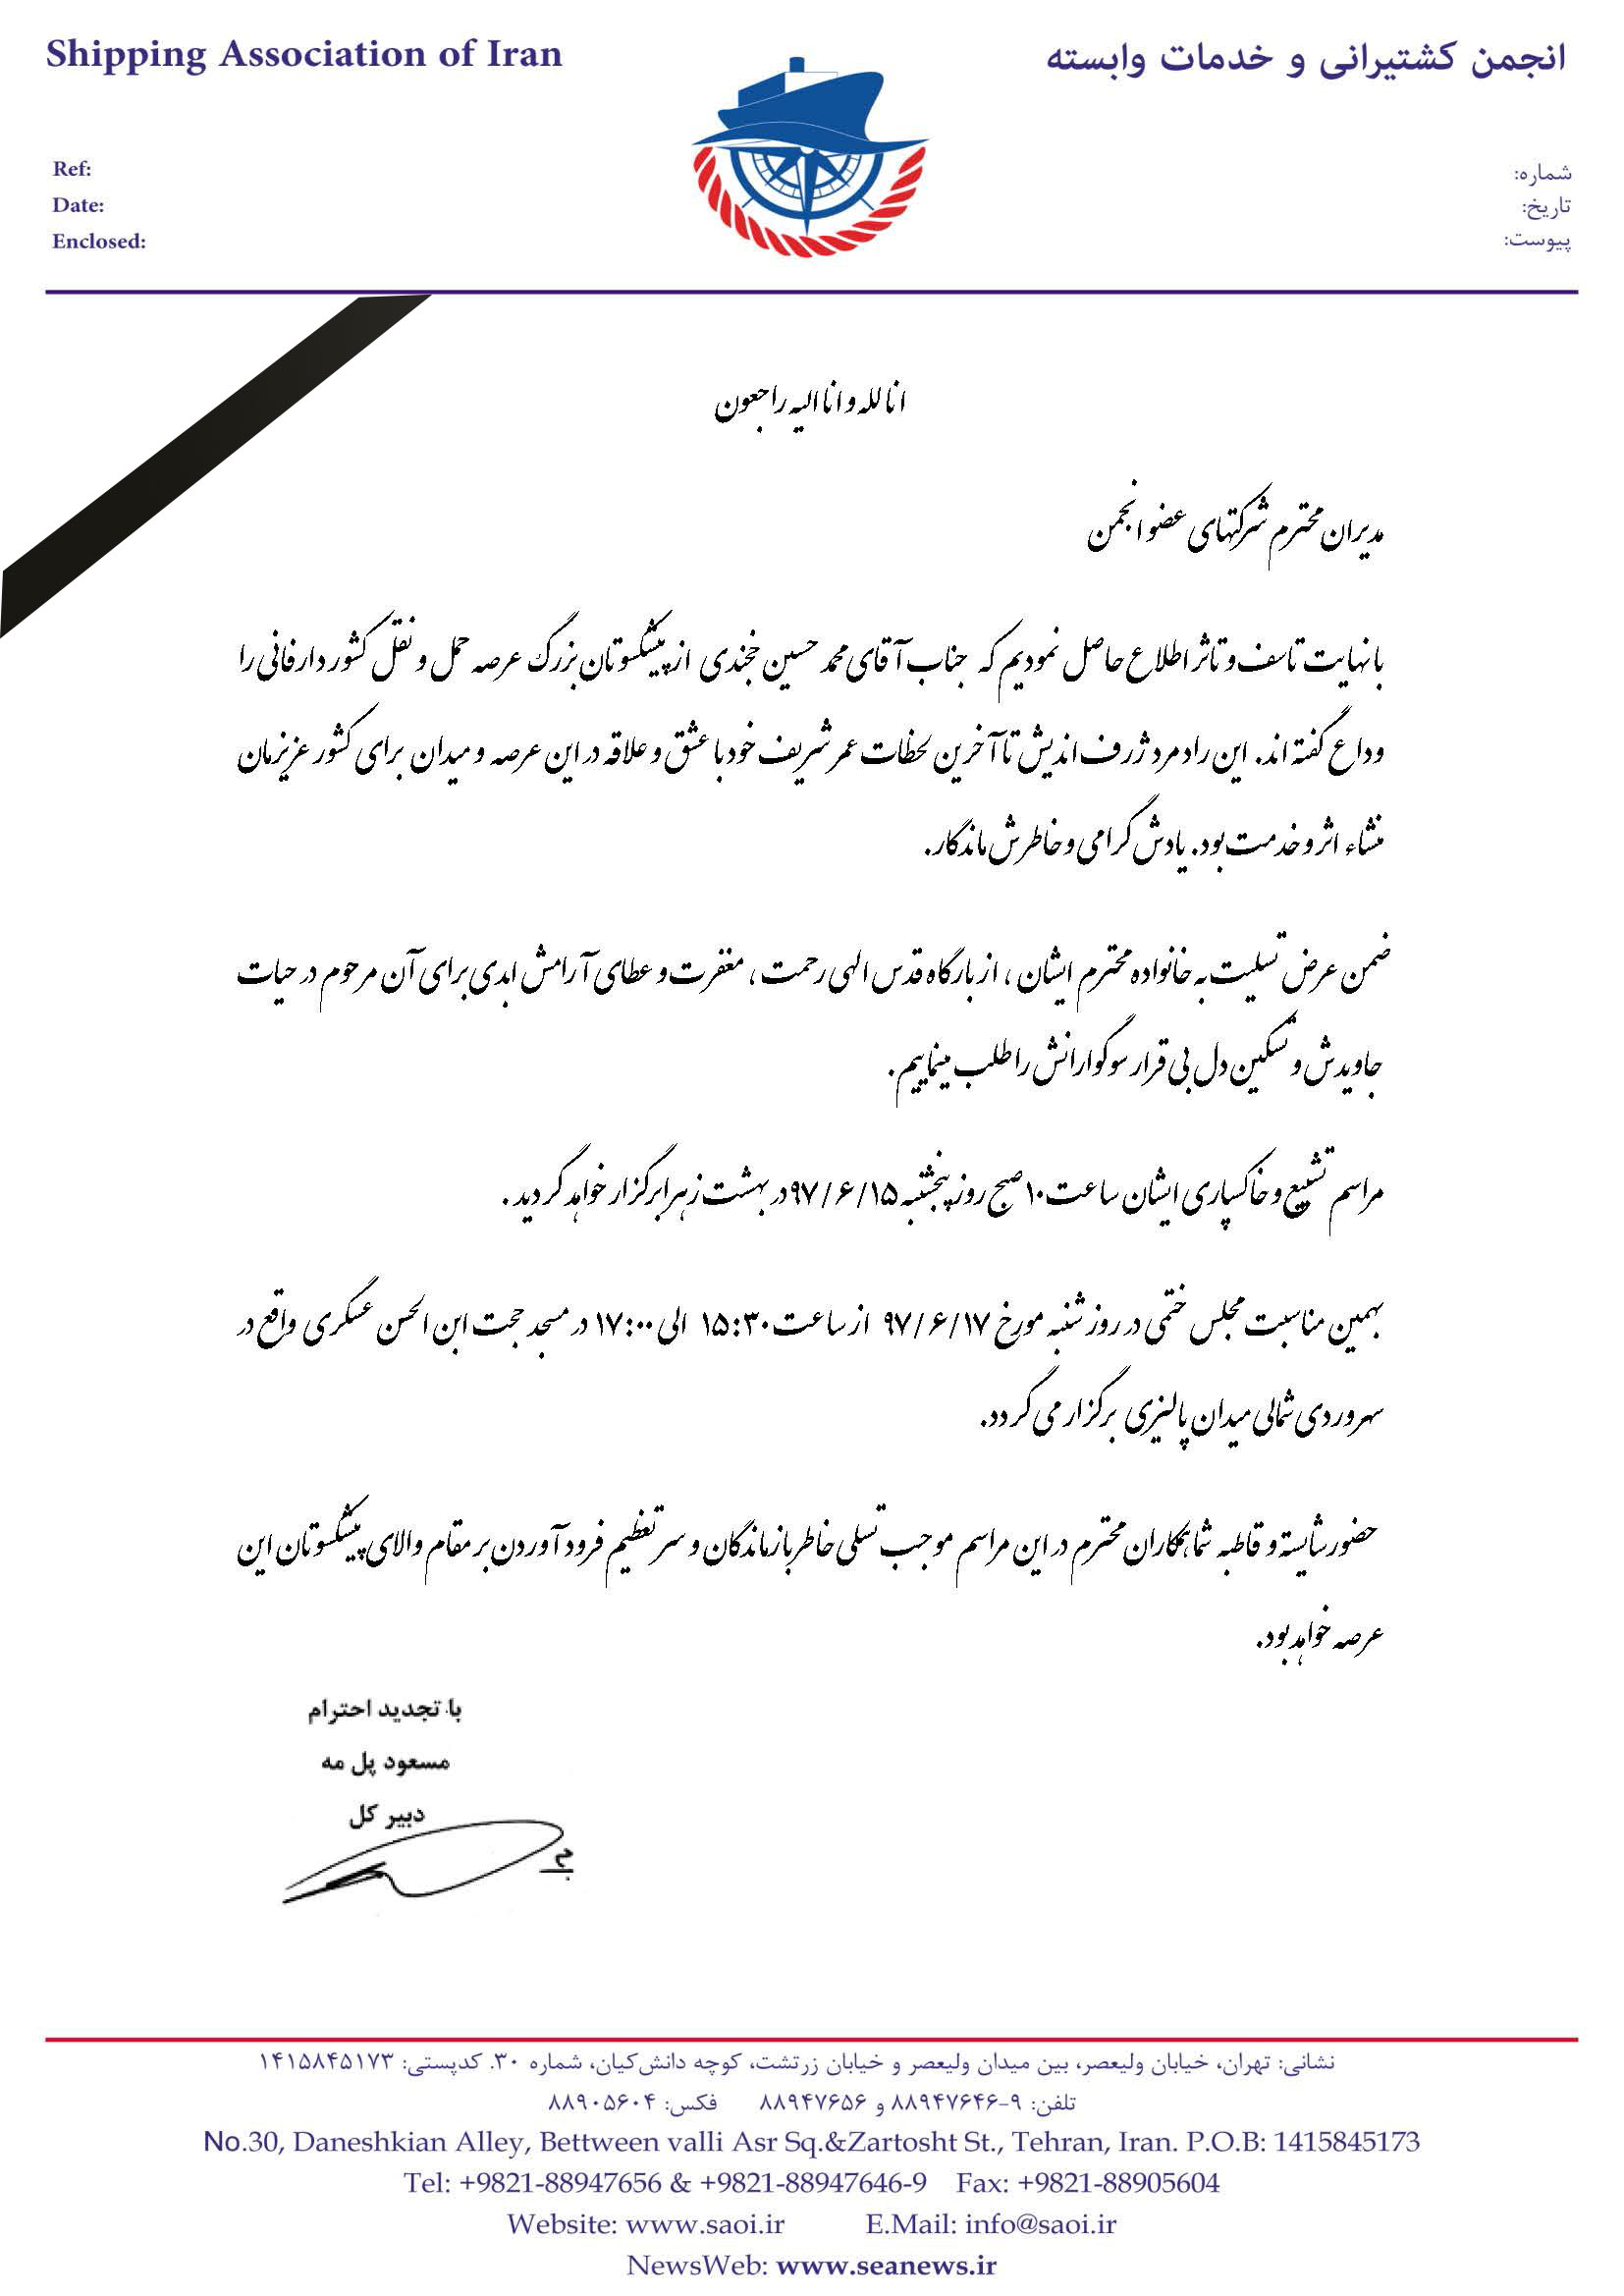 Shipping Association of Iran
انجمن کشتیرانی و خدمات وابسته
Ref:
Date:
Enclosed:
شماره:
تاریخ:
پیوست:
انا لله و انا الیه راجعون
مدیران محترم شرکتهای عضو انجمن
با نهایت تاسف و تاثر اطلاع حاصل نمودیم که جناب آقای محمد حسین خجندی از پیشکسوتان بزرگ عرصه حمل و نقل کشور دارفانی را
وداع گفته اند. این رادمرد ژرف اندیش تا آخرین لحظات عمر شریف خود با عشق و علاقه در این عرصه و میدان برای کشور عزیزمان
منشاء اثر و خدمت بود. یادش گرامی و خاطرش ماندگار.
ضمن عرض تسلیت به خانواده محترم ایشان ، از بارگاه قدس الهی رحمت ، مغفرت و عطای آرامش ابدی برای آن مرحوم در حیات
جاویدش و تسکین دل بی قرار سوگوارانش را طلب مینماییم.
مراسم تشییع و خاکسپاری ایشان ساعت ۱۰ صبح روز پنجشنبه ۹۷/۶/۱۵ در بهشت زهرا برگزار خواهد گردید .
بهمین مناسبت مجلس ختمی در روز شنبه مورخ ۹۷/۶/۱۷ از ساعت ۱۵:۳۰ الی ۱۷:۰۰ در مسجد حجت ابن الحسن عسکری واقع در
سهروردی شمالی میدان پالیزی برگزار می گردد.
حضور شایسته و قاطبه شما همکاران محترم در این مراسم موجب تسلی خاطر بازماندگان و سر تعظیم فرود آوردن بر مقام والای پیشکسوتان این
عرصه خواهد بود.
با تجدید احترام
مسعود پل مه
دبیر کل
نشانی: تهران، خیابان ولیعصر، بین میدان ولیعصر و خیابان زرتشت، کوچه دانش‌کیان، شماره ۳۰. کدپستی: ۱۴۱۵۸۴۵۱۷۳
تلفن: ۹-۸۸۹۴۷۶۴۶ و ۸۸۹۴۷۶۵۶ فکس: ۸۸۹۰۵۶۰۴
No.30, Daneshkian Alley, Bettween valli Asr Sq.&Zartosht St., Tehran, Iran. P.O.B: 1415845173
Tel: +9821-88947656 & +9821-88947646-9 Fax: +9821-88905604
Website: www.saoi.ir E.Mail: info@saoi.ir
NewsWeb: www.seanews.ir